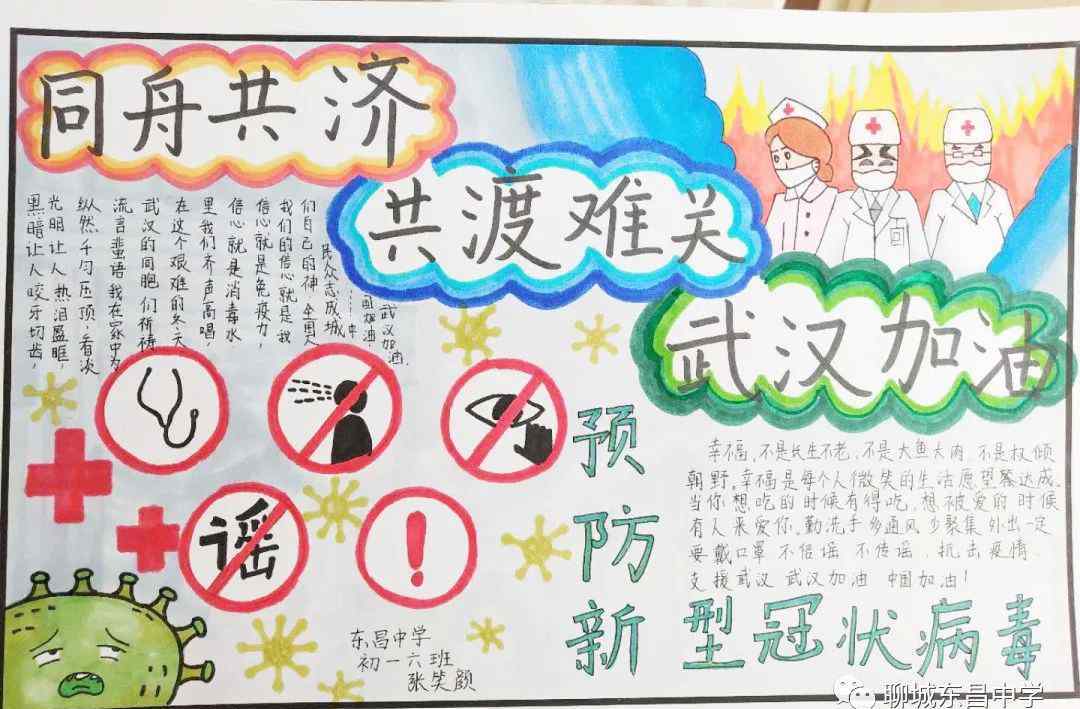 同舟共济
共渡难关
武汉加油
黑暗让人咬牙切齿，
光明让人热泪盈眶，
纵然千匀压顶，看次
流言蜚语 我在家中为
武汉的同胞们祈祷
在这个艰难的冬天
里我们齐声高唱
信心就是消毒水
信心就是免疫力，
我们的信心就是我
们自己的神，全国人
民众志成城
……中
国加油
武汉加油。
谣
预防
新型冠状病毒
幸福，不是长生不老，不是大鱼大肉，不是权倾
朝野。幸福是每个人微笑的生活愿望馨达成。
当你想吃的时候有得吃，想被爱的时候
有人来爱你。勤洗手 多通风 少聚集 外出一定
要戴口罩 不信谣 不传谣，抗击疫情，
支援武汉 武汉加油 中国加油！
东昌中学
初一六班
张笑颜
聊城东昌中学